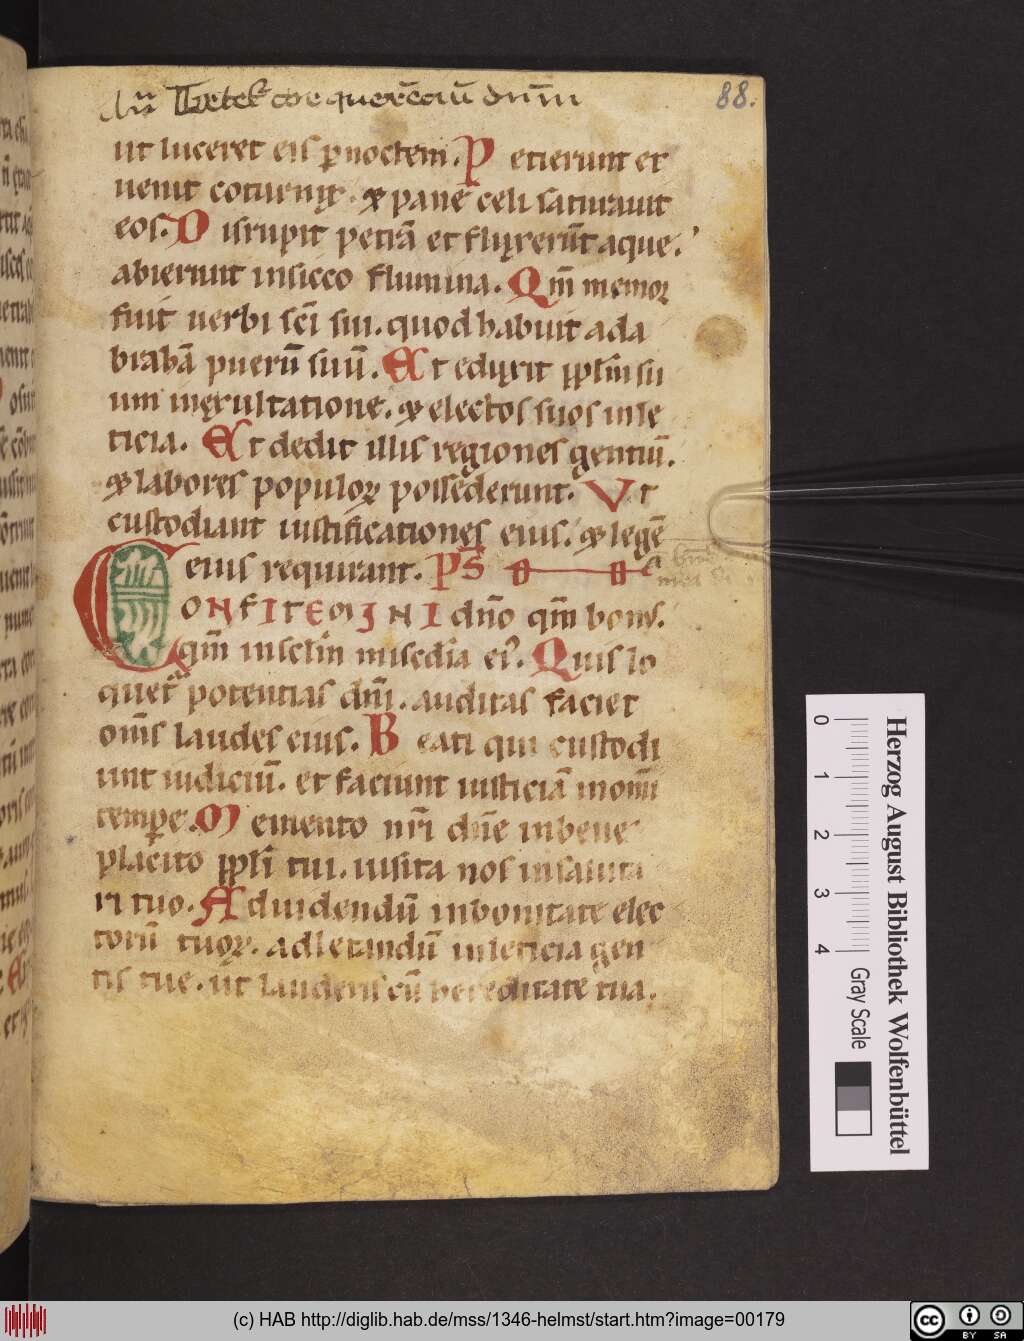 cor querẽciũ dnm̃
88.
ut luceret eis p̱ noctem. Petierunt et
uenit coturnix. & panẽ celi saturauit
eos. Disrupit petrã et fluxerũt aque.
abierunt insicco flumina. Qm̃ memoꝝ
fuit uerbi sc̃i sui. quod habuit ada
brahã puerũ suũ. Et eduxit pp̱lm̃ su
um inexultatione. & electos suos inle
ticia. Et dedit illis regiones gentiũ.
& labores populoꝝ possederunt. Vt
custodiant iustificationes eius. & legẽ
eius requirant. PS̃
CONFITEMINI dño qm̃ bonus.
qm̃ insclm̃ misc̃dia ei᾽. Quis lo
quet᷑ potentias dñi. auditas faciet
om̃s laudes eius. Beati qui custodi
unt iudiciũ. et faciunt iusticiã inom̃i
temp̱e. Memento nr̃i dñe inbene
placito pp̱li tui. uisita nos insaluta
ri tuo. Aduidendũ inbonitate elec
torũ tuoꝝ. adletandũ inleticia gen
tis tue. ut lauderis cũ hereditate tua.
Herzog August Bibliothek Wolfenbüttel
0 1 2 3 4 Gray Scale
(c) HAB http://diglib.hab.de/mss/1346-helmst/start.htm?image=00179
cc BY SA